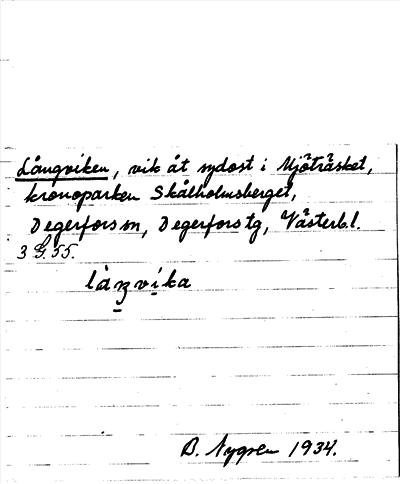 Långviken, vik åt sydost i Mjöträsket,
kronoparken Skålholmsberget,
Degerfors sn, Degerfors tg, Västerb.l.
3 G. 55.
làŋvi̱ka
B. Nygren 1934.